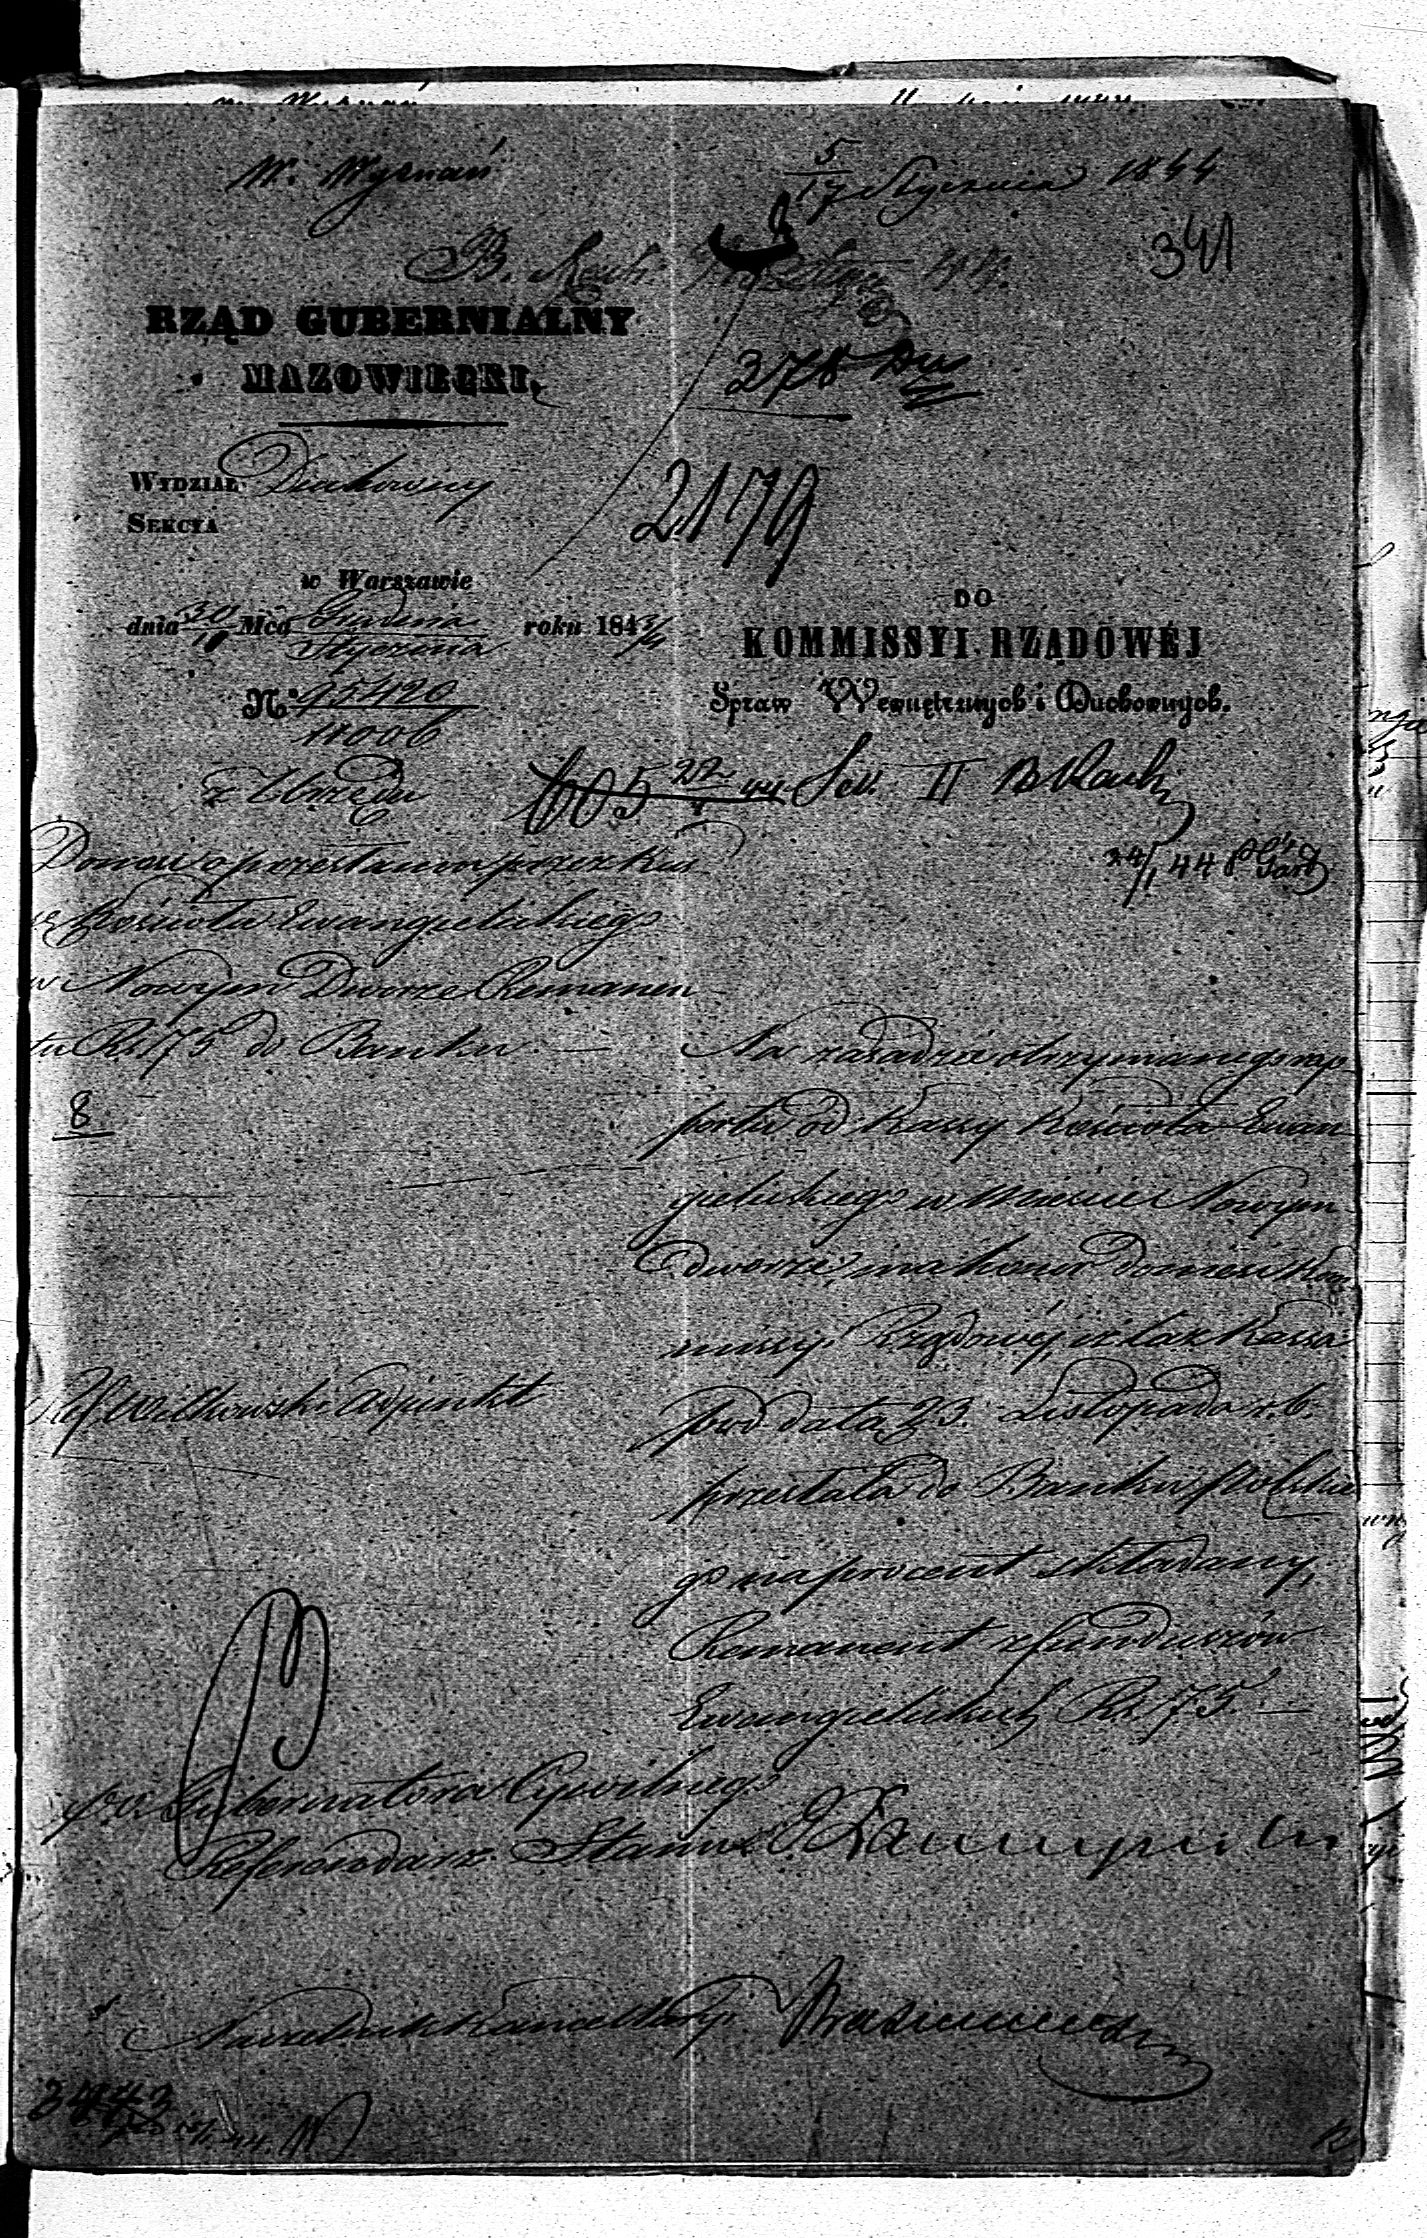 W. Wyznań
5/17 Stycznia 1844
341
B.
RZĄD GUBERNIALNY
MAZOWIECKI.
378
WYDZIAŁ Duchowny
SEKCYA
2179
w Warszawie
dnia 30/11 Mca Grudnia/Stycznia roku 1843/4
N° 95420/11006
z Urzędu
DO
KOMMISSYI RZĄDOWÉJ
Spraw Wewnętrznych i Duchownych.
605 22/1 44 Sek. II B Rach
24/1 44
Donosi o przesłaniu przez Kas
sę Kościoła Ewangielickiego
w Nowym Dworze Remanen
tu Rs. 175 do Banku
8
Na zasadzie otrzymanego rap
portu od Kassy Kościoła Ewan
gielickiego w Mieście Nowym
dworze, ma honor donieść Kom
missyi Rządowéj, iż taż Kassa
pod datą 23. Listopada r. b.
przesłała do Banku Polskie
go na procent składany,
Remanent z funduszów
Ewangielickich Rs. 175.
Witkowski Adjunkt
p. o. Gubernatora Cywilnego
Referendarz Stanu
Naczelnik Kancellaryi
3443